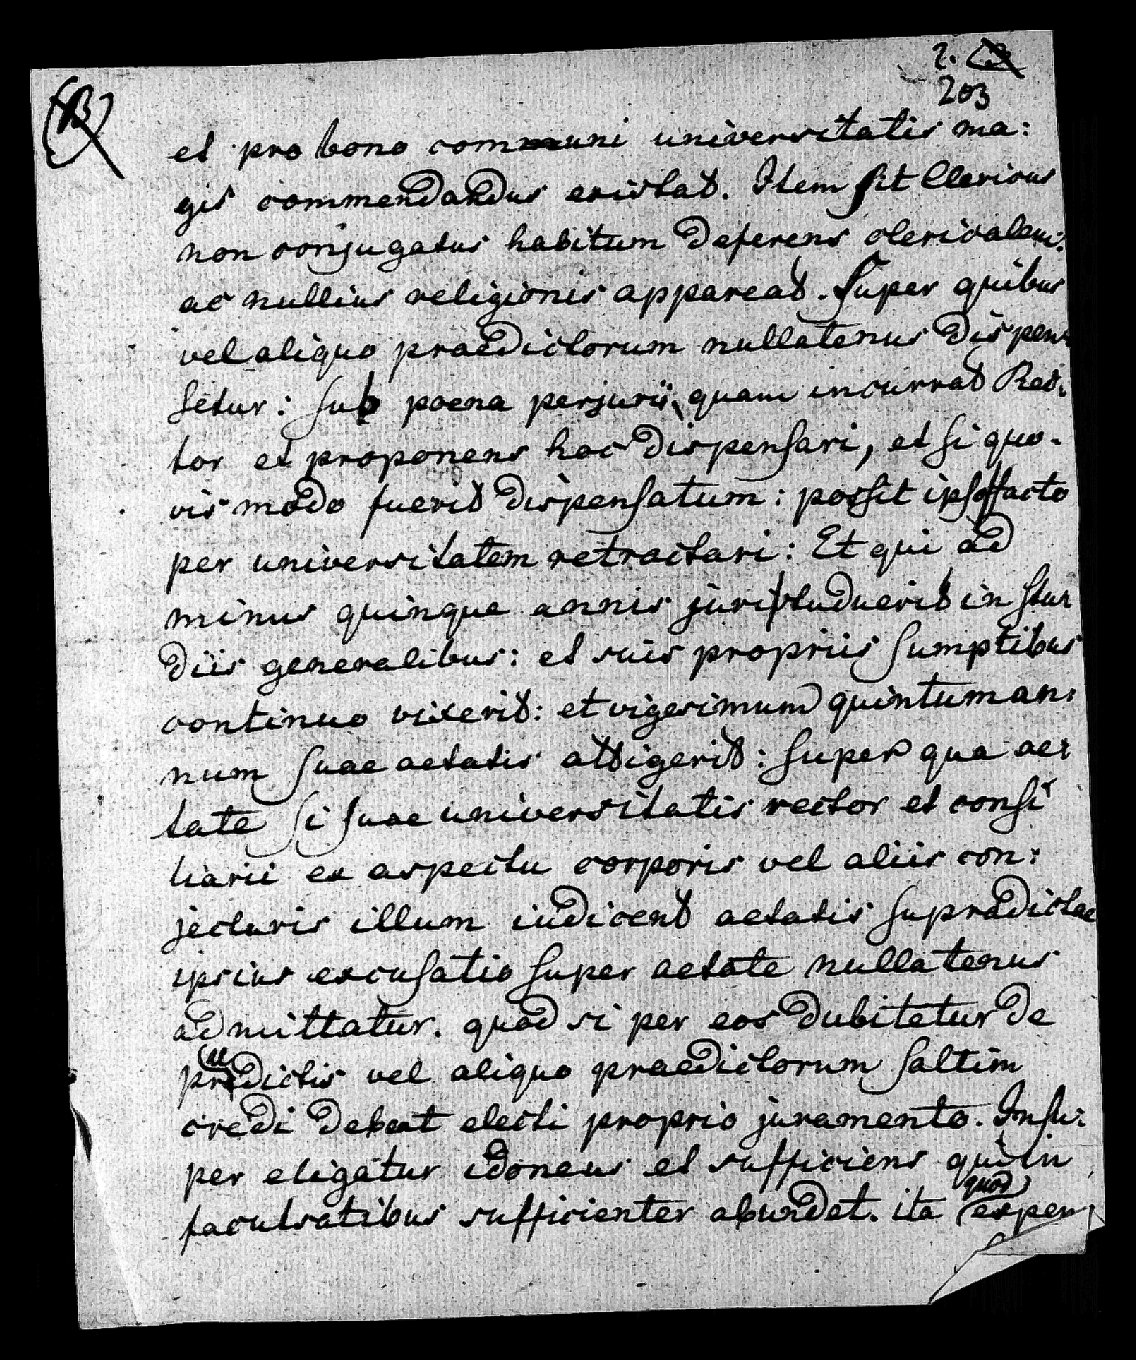 2.
203
et pro bono communi universitatis ma:
gis commendandus existat. Item sit Clericus
non conjugatus habitum deferens clericalem:
ac nullius religionis appareat. Super quibus
vel aliquo praedictorum nullatenus dispen:
setur: sub poena perjurii, quam incurrat Rec:
tor et proponens hoc dispensari, et si quo-
vis modo fuerit dispensatum: possit ipso facto
per universitatem retractari: Et qui ad
minus quinque annis juri studuerit in stu:
diis generalibus: et suis propriis sumptibus
continuo vixerit: et vigesimum quintum an:
num suae aetatis attigerit: super qua ae:
tate si suae universitatis rector et consi
liarii ex aspectu corporis vel aliis con:
jecturis illum iudicent aetatis supradictae
ipsius excusatio super aetate nullatenus
admittatur. quod si per eos dubitetur de
praedictis vel aliquo praedictorum saltim
credi debeat electi proprio juramento. Insu:
per eligatur idoneus et sufficiens qui in
facultatibus sufficienter abundet. ita quod expen